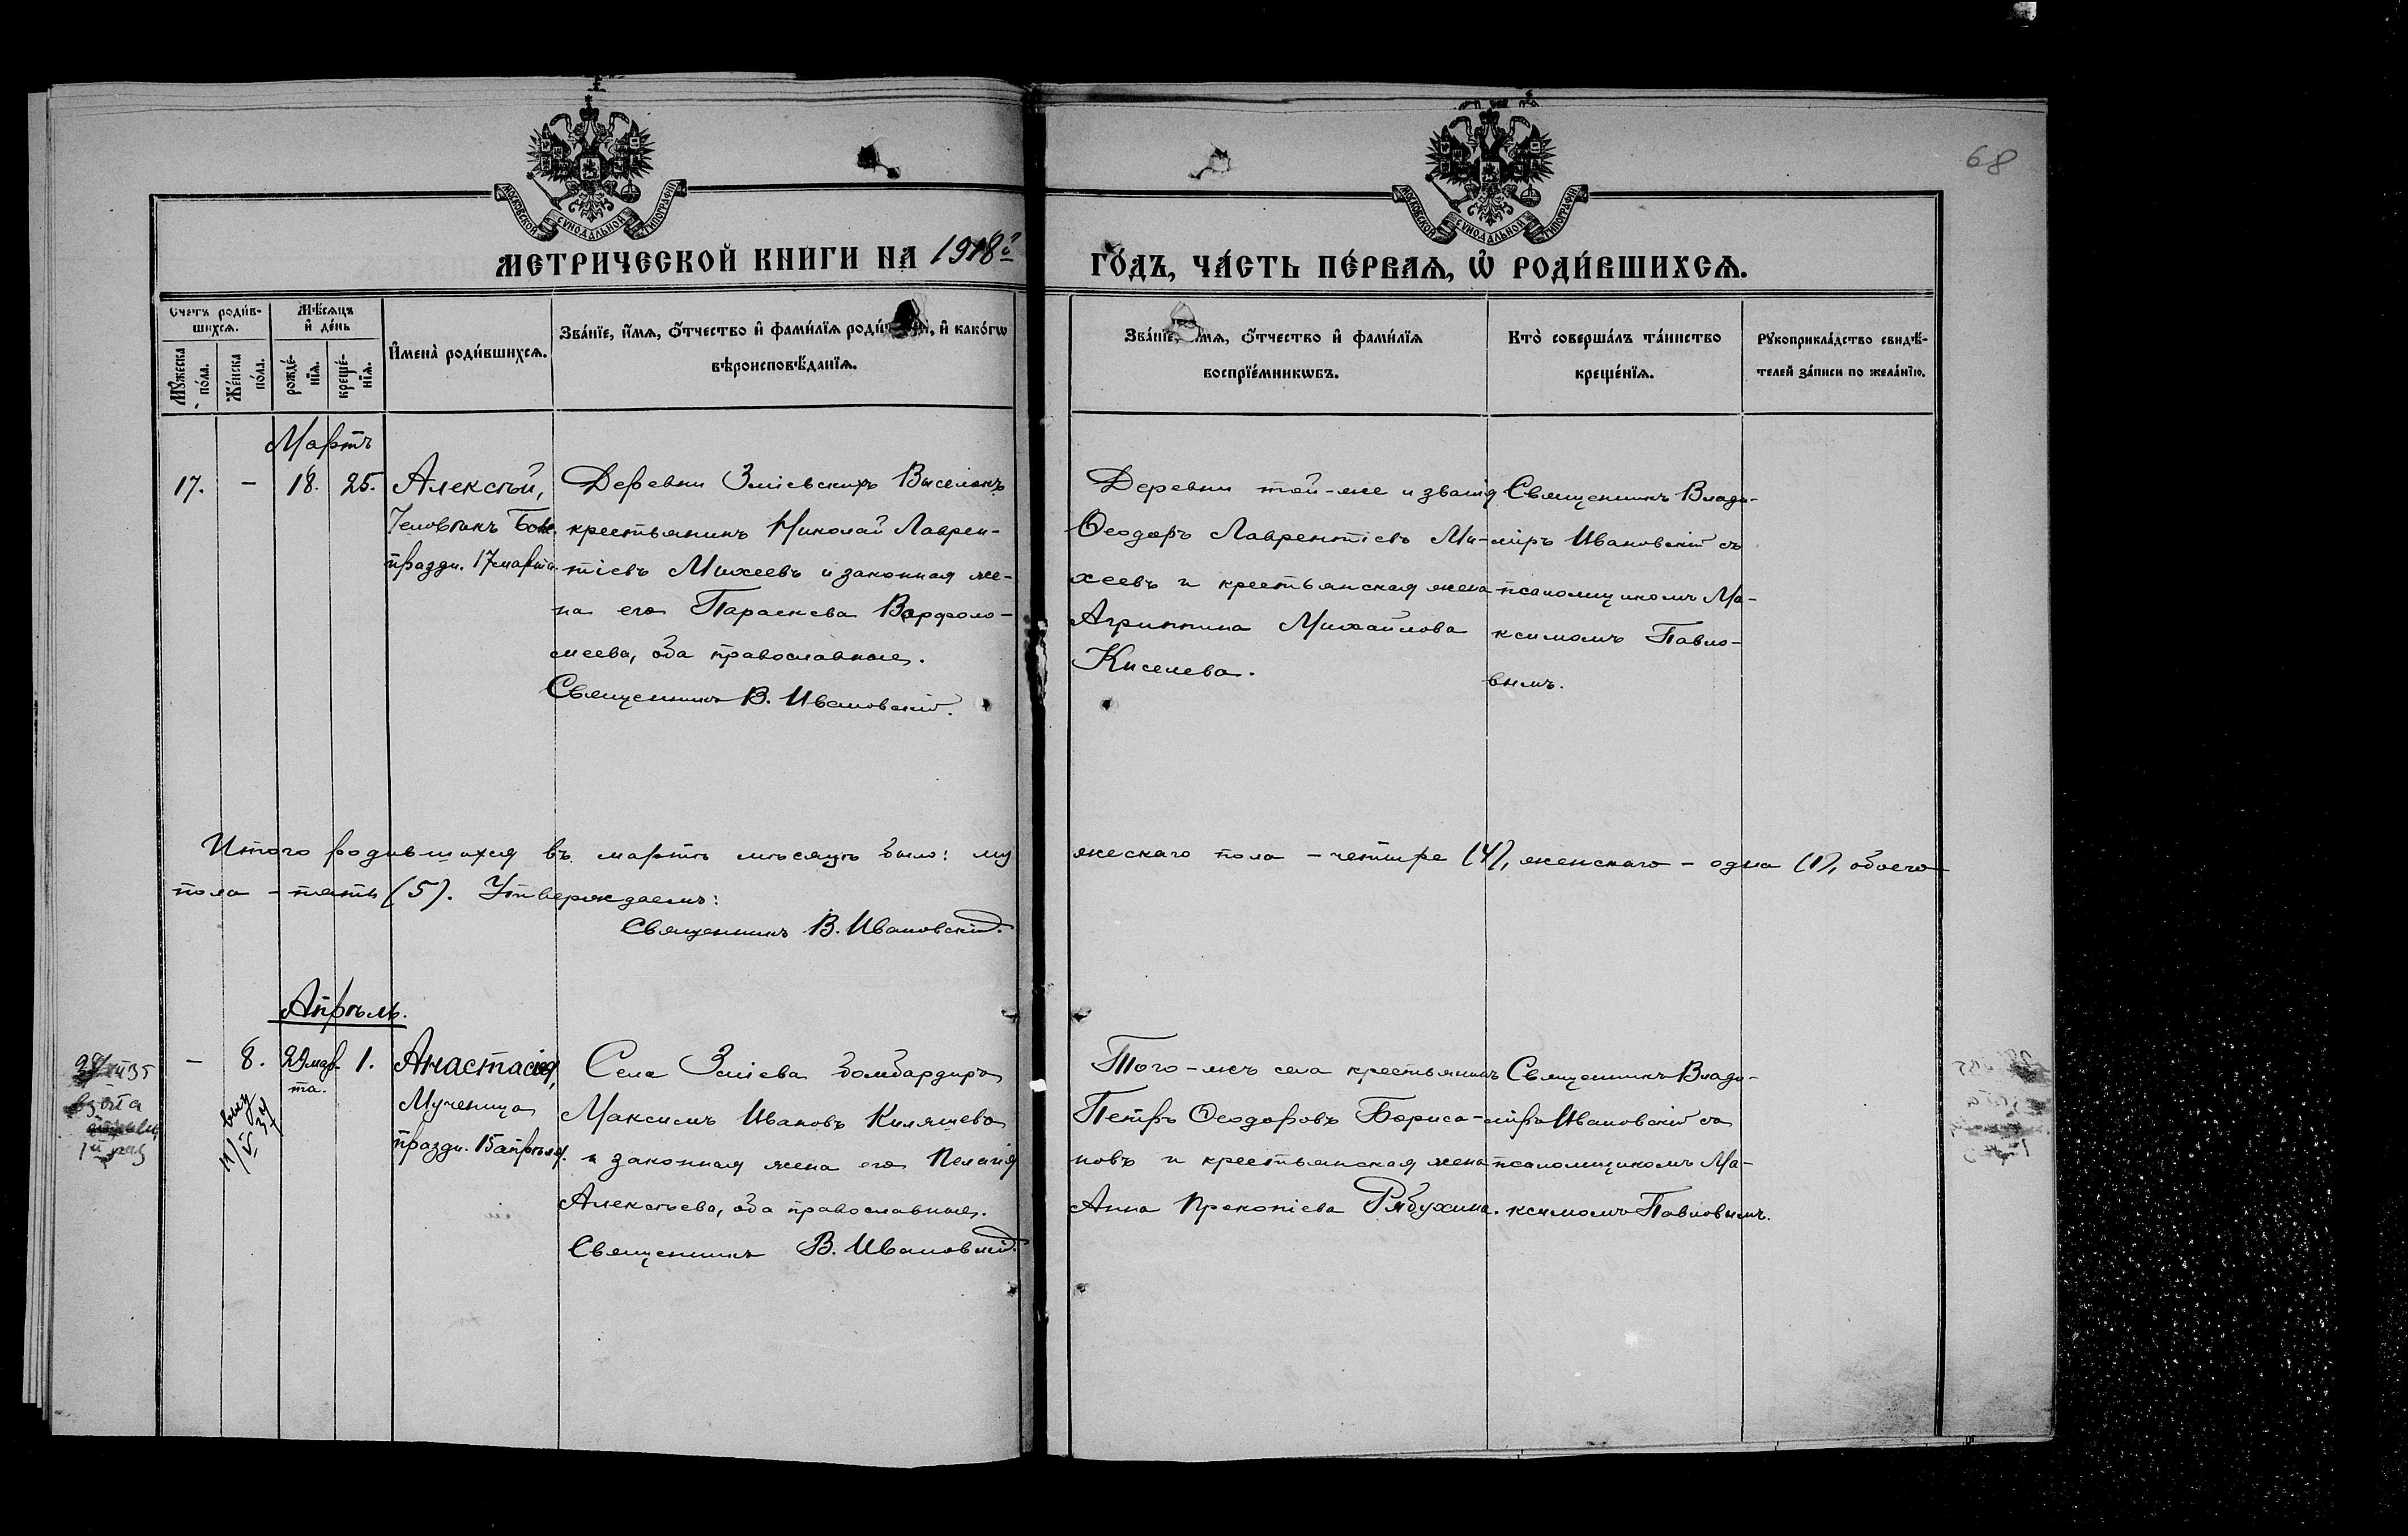 68
МОСКОВСКОЙ СУНОДАЛЬНОЙ ТИПОГРАФІИ
МОСКОВСКОЙ СУНОДАЛЬНОЙ ТИПОГРАФІИ
МЕТРИЧЕСКОЙ КНИГИ НА 1918й
ГО́ДЪ, ЧА́СТЬ ПЕ́РВАѦ, Ѡ҆ РОДИ́ВШИХСѦ.
Счетъ роди́в-
шихсѧ.
Мꙋ́жеска по́ла.
Же́нска по́ла.
Мѣ́сѧцъ
и҆ де́нь
рожде́-
нїѧ.
креще́-
нїѧ.
И҆мена̀ роди́вшихсѧ.
Зва́нїе, и҆́мѧ, ѻ҆́тчество и҆ фами́лїѧ роди́ и҆ како́гѡ
вѣроисповѣ́данїѧ.
Зва́нїе, и҆́мѧ, ѻ҆́тчество и҆ фами́лїѧ
воспрїе́мникѡвъ.
Кто̀ соверша́лъ та́инство
креще́нїѧ.
Рꙋкоприкла́дство свидѣ́-
телей за́писи по жела́нїю.
Мартъ
17. - 18. 25.
Алексѣй,
Человѣкъ Бож.
праздн. 17 марта.
Деревни Зміевскихъ Выселокъ
крестьянинъ Николай Лаврен-
тіевъ Михеевъ и законная же-
на его Параскева Варфоло-
меева, оба православные.
Священникъ В. Ивановскій.
Деревни той-же и званія
Ѳеодоръ Лаврентіевъ Ми-
хеевъ и крестьянская жена
Агриппина Михайлова
Киселева.
Священникъ Влади-
міръ Ивановскій съ
псаломщикомъ Ма-
ксимомъ Павло-
вымъ.
Итого родившихся въ мартѣ мѣсяцѣ было: му
жескаго пола - четыре (4), женскаго - одна (1), обоего
пола - пять (5). Утверждаемъ:
Священникъ В. Ивановскій.
Апрѣль.
- 8. 29 мар-
та. 1.
взята
1й раз
выд
Анастасія,
Мученица
праздн. 15 апрѣля.
Села Зміева бомбардиръ
Максимъ Ивановъ Киляшевъ
и законная жена его Пелагія
Алексѣева, оба православные.
Священникъ В. Ивановскій.
Того-жъ села крестьянинъ
Петръ Ѳеодоровъ Бориса-
новъ и крестьянская жена
Анна Прокопіева Рябухина.
Священникъ Влади-
міръ Ивановскій съ
псаломщикомъ Ма-
ксимомъ Павловымъ.